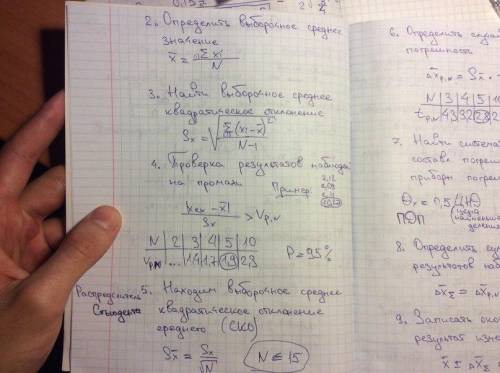 2. Определить выборочное среднее
значение
x̄ = Σ xi / N
3. Найти выборочное среднее
квадратическое отклонение
Sx = √(Σ(xi - x̄)² / N-1)
4. Проверка результатов наблюд
на промахи
Пример:
|xех - x̄| / Sx > Vp,N
N 2 3 4 5 10
Vp,N ... 1,4 1,7 1,9 2,3
P = 95%
5. Находим выборочное среднее
Стьюдента
квадратическое отклонение
среднего (СКО)
Sx̄ = Sx / √N
N ≤ 15
6. Определить случ
погрешность
Δxp,N = Sx̄ ·
N 3 4 5
tp,N 4,3 3,2 2,8
7. Найти система
состав погре
приборн погре
Θx = 0,5 ЦНД
ПОП
8. Определить су
результатов на
ΔxΣ = Δxp,N
9. Записать око
результат изме
x̄ ± ΔxΣ =